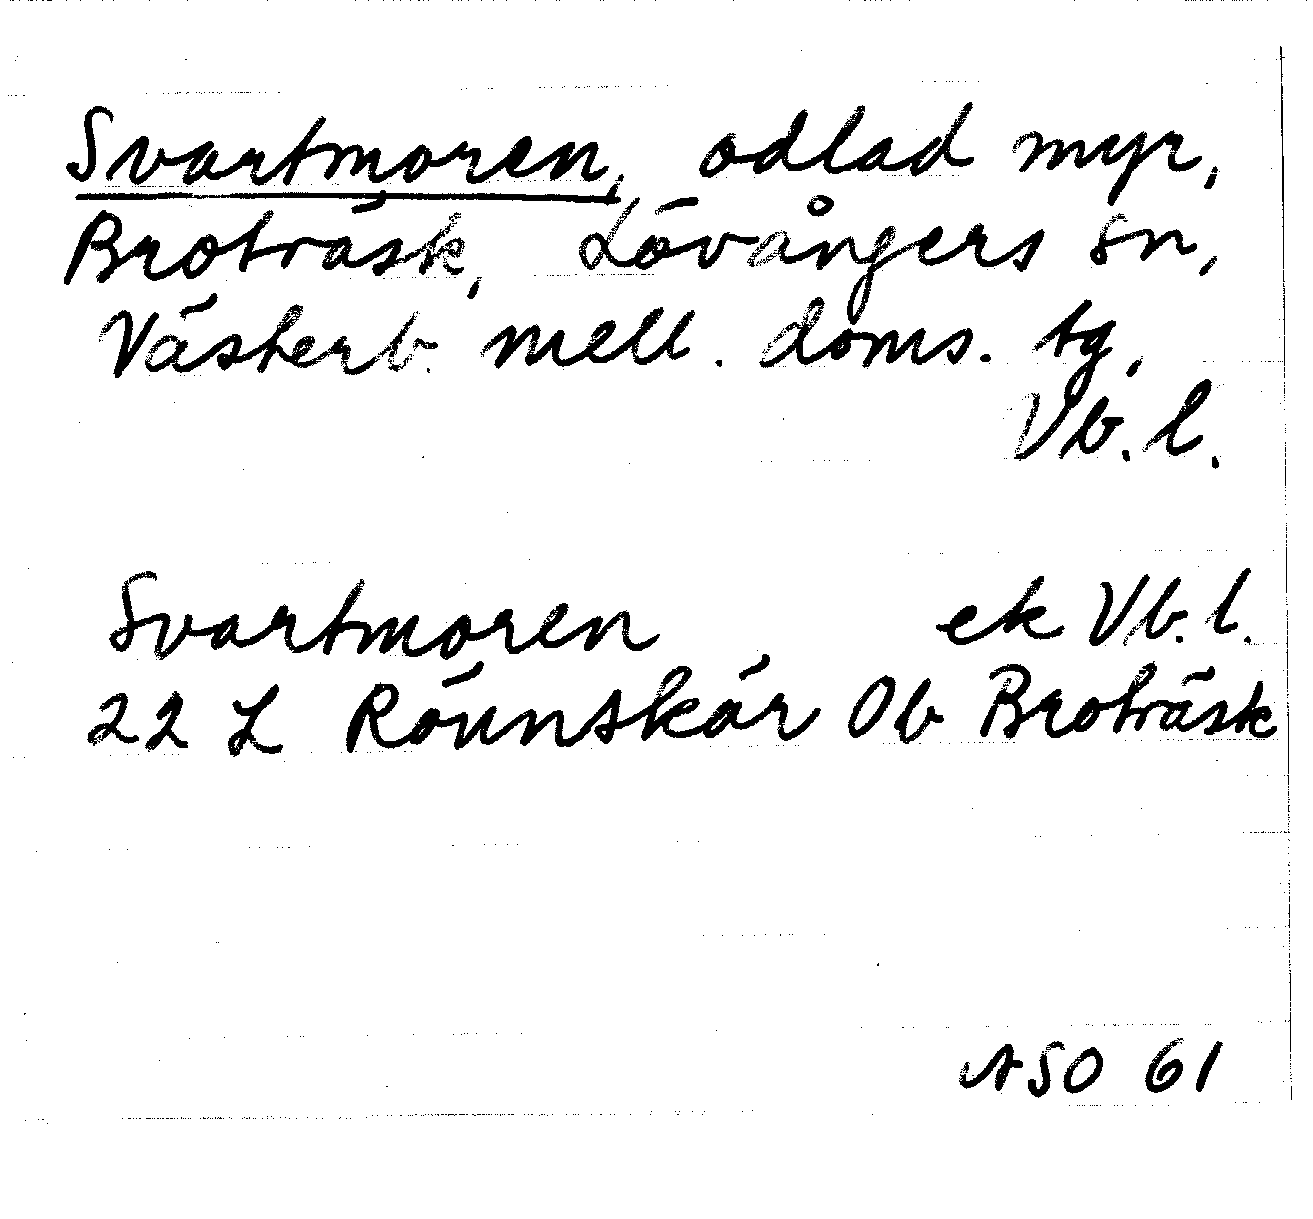 Svartmoren, odlad myr,
Broträsk, Lövångers sn,
Västerb. mell. doms. tg,
Vb. l.
Svartmoren ek Vb. l.
22 L Rönnskär Ob Broträsk
ASO 61